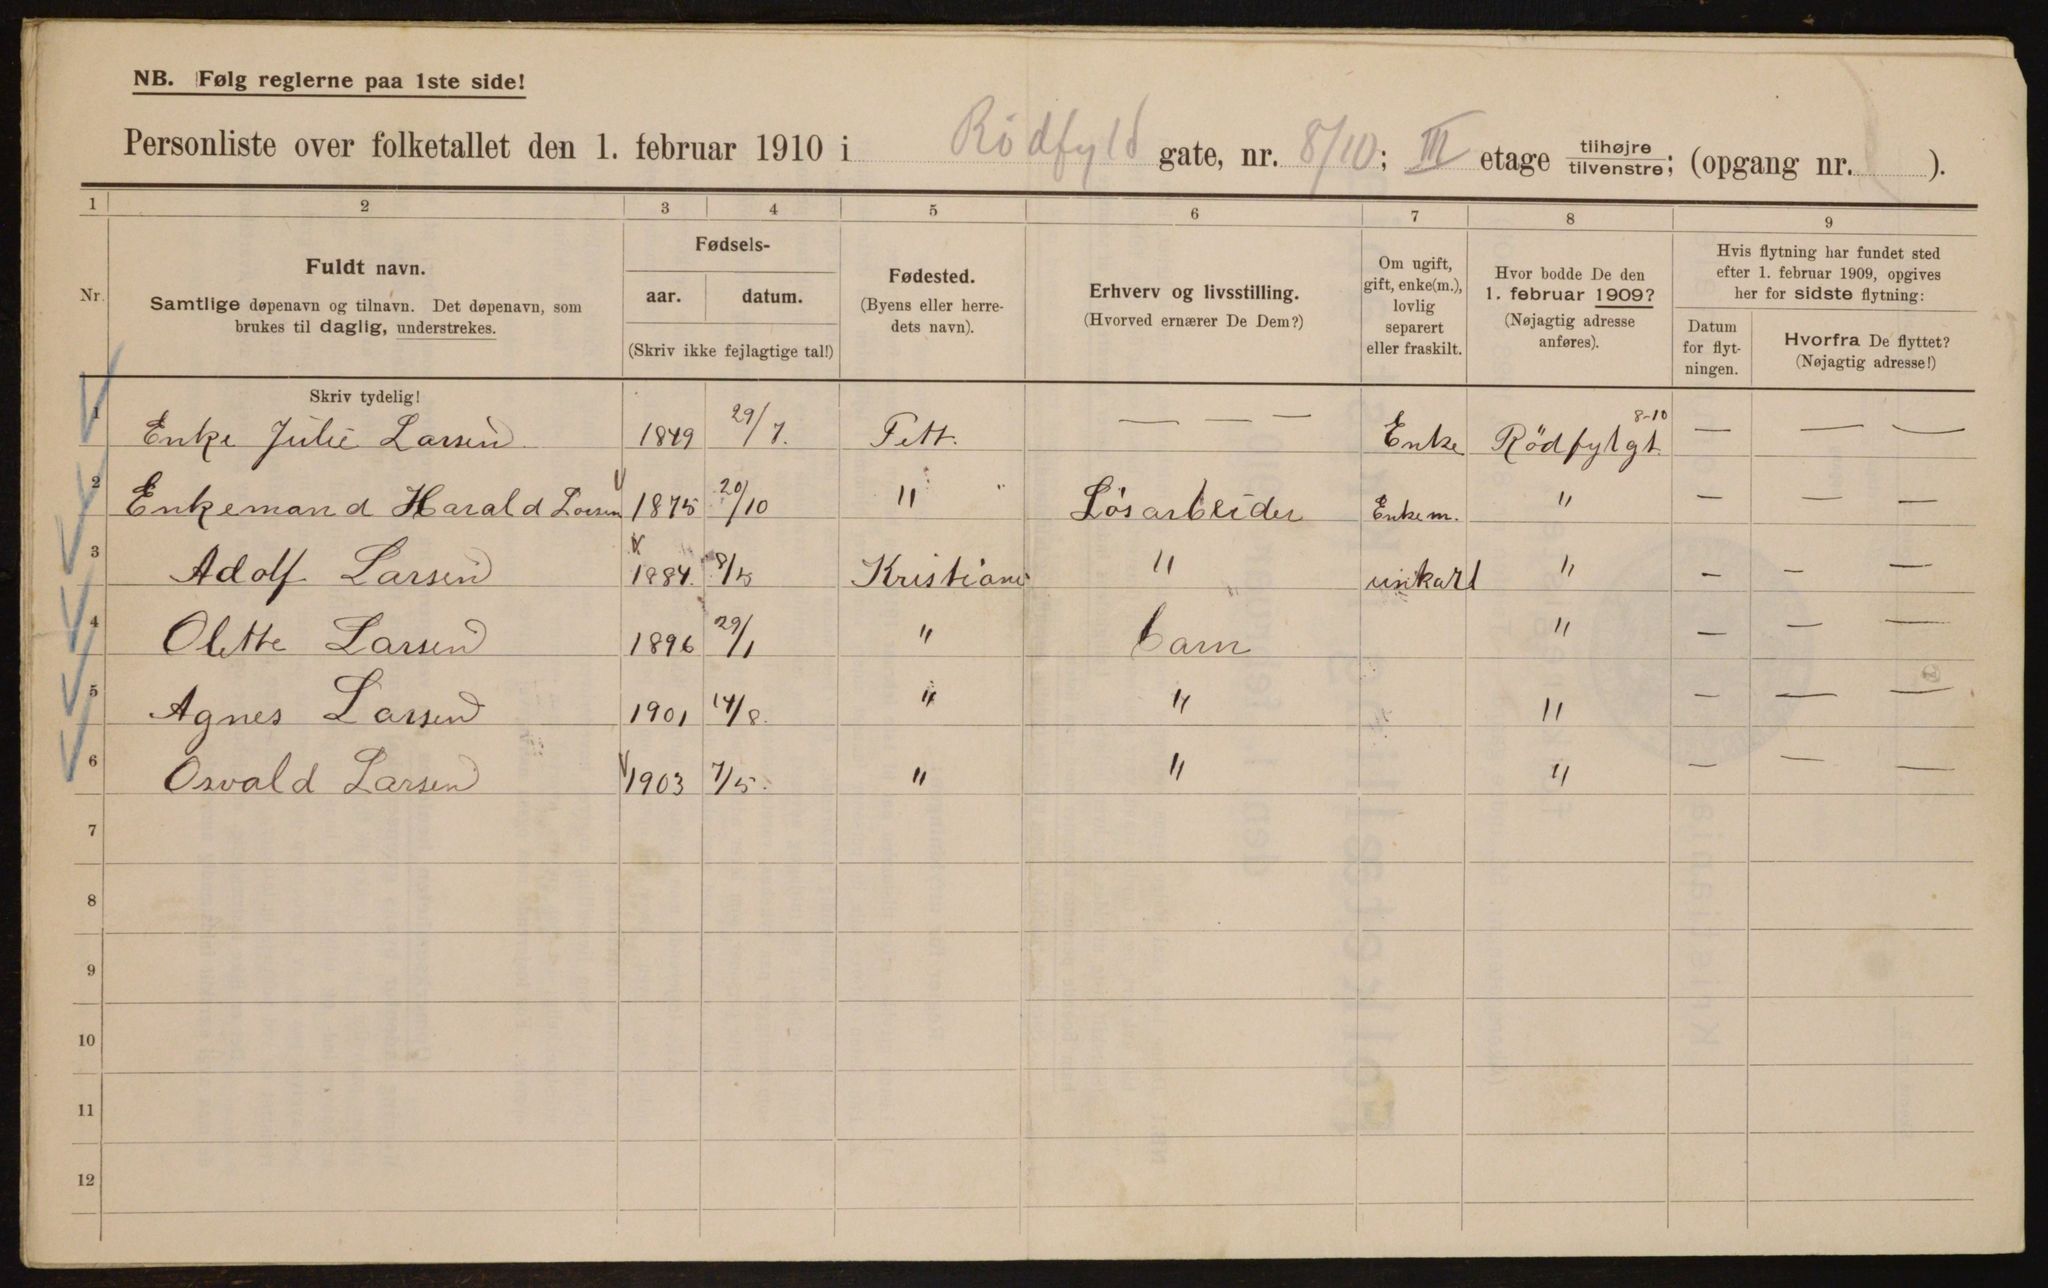 NB. Følg reglerne paa 1ste side!
Personliste over folketallet den 1. februar 1910 i Rödfyld gate, nr. 8/10; III etage tilhøjre/tilvenstre; (opgang nr. ).
1 2 3 4 5 6 7 8 9
Nr.
Fuldt navn.
Samtlige døpenavn og tilnavn. Det døpenavn, som
brukes til daglig, understrekes.
Fødsels-
aar. datum.
(Skriv ikke fejlagtige tal!)
Fødested.
(Byens eller herre-
dets navn).
Erhverv og livsstilling.
(Hvorved ernærer De Dem?)
Om ugift,
gift, enke(m.),
lovlig
separert
eller fraskilt.
Hvor bodde De den
1. februar 1909?
(Nøjagtig adresse
anføres).
Hvis flytning har fundet sted
efter 1. februar 1909, opgives
her for sidste flytning:
Datum
for flyt-
ningen.
Hvorfra De flyttet?
(Nøjagtig adresse!)
Skriv tydelig!
1 Enke Julie Larsen 1849 29/7. Fett. — — — Enke Rödfylgt. 8-10 — — —
2 Enkemand Harald Larsen 1875 20/10 " Lösarbeider Enkem. " — — —
3 Adolf Larsen 1884. 8/5 Kristiania " unkarl " — — —
4 Olette Larsen 1896 29/1 " barn " — — —
5 Agnes Larsen 1901 14/8. " " " — — —
6 Osvald Larsen 1903 7/5. " " " — — —
7
8
9
10
11
12